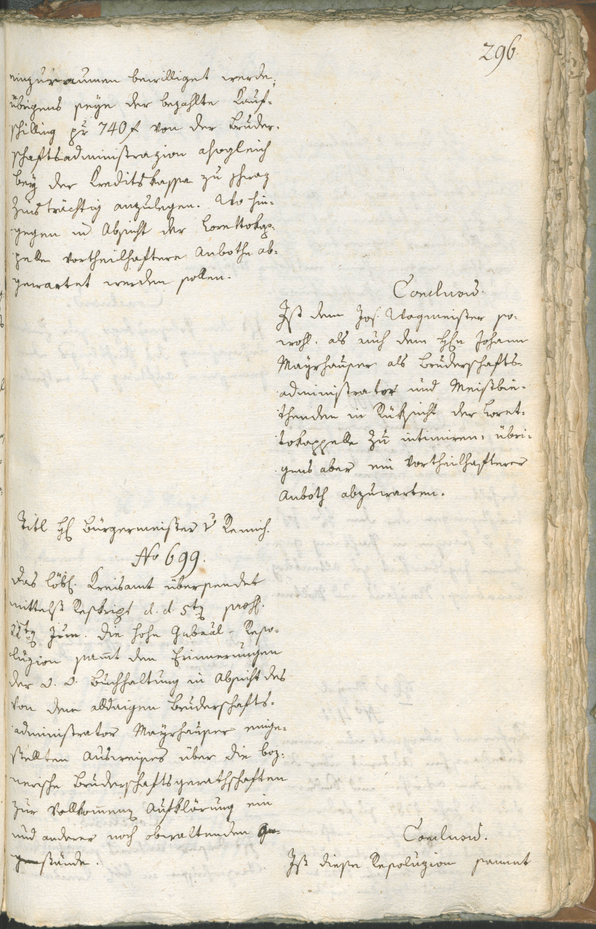 296
einzuraumen bewilliget werde,
übrigens seye der bezahlte Kauf-
schilling pr 740 f von der Bruder-
schaftsadministrazion alsogleich
bey der Kreditskassa zu
Zinsträchtig anzulegen. Wo hin-
gegen in Absicht der Lorettokap-
pelle vortheilhaftere Anbothe ab-
gewartet werden sollen.
Conclusum.
Ist dem Jos. Wogmeister so-
wohl, als auch dem Hhn Johann
Mayrhauser als Bruderschafts-
administrator und Meistbie-
thenden in Rüksicht der Loret-
tokappelle zu intimiren, übri-
gens aber ein vortheilhafterer
Anboth abzuwarten.
Titl H Bürgermeister v
No 699.
Das löbl. Kreisamt übersendet
mittelst Reskript d. d. 5t
22t Jun. die hohe Guberal Reso-
luzion samt den Erinnerungen
der Buchhaltung in Absicht des
von dem alldaigen Bruderschafts-
administrator Mayrhauser einge-
stellten Ausweises über die boz-
nerische Bruderschaftsgeräthschaften
zur vollkommenen Aufklärung ein
und anderer noch obwaltenden
stände.
Conclusum.
Ist diese Resoluzion sammt